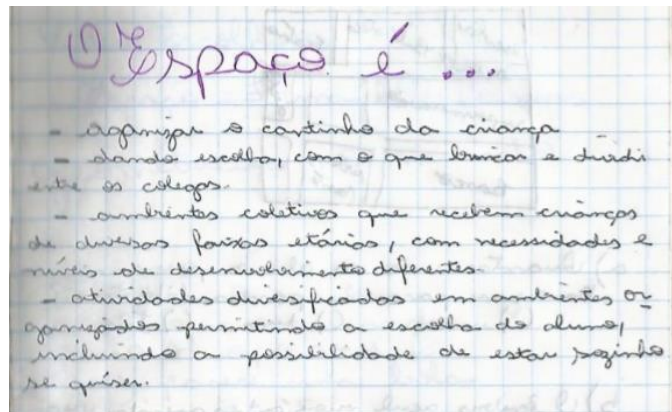 O Espaço é ...
- aganizar o cantinho da criança
- dando escolha, com o que brincar e dividi
entre os colegas.
- ambientes coletivos que recebem crianças
de diversas faixas etárias, com necessidades e
níveis de desenvolvimento diferentes.
- atividades diversificadas em ambientes or
ganizados permitindo a escolha do aluno,
incluindo a possibilidade de estar sozinho
se quiser.